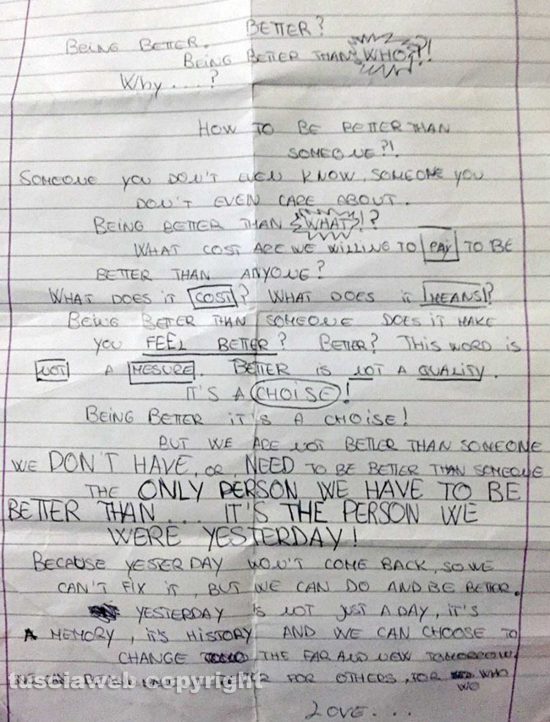 BETTER?
BEING BETTER.
BEING BETTER THAN WHO?!
Why....?
HOW TO BE BETTER THAN
SOMEONE?!
SOMEONE YOU DON'T EVEN KNOW, SOMEONE YOU
DON'T EVEN CARE ABOUT.
BEING BETTER THAN WHAT!?
WHAT COST ARE WE WILLING TO PAY TO BE
BETTER THAN ANYONE?
WHAT DOES IT COST? WHAT DOES IT MEANS?
BEING BETTER THAN SOMEONE DOES IT MAKE
YOU FEEL BETTER? BETTER? THIS WORD IS
NOT A MESURE. BETTER IS NOT A QUALITY.
IT'S A CHOISE!
BEING BETTER IT'S A CHOISE!
BUT WE ARE NOT BETTER THAN SOMEONE
WE DON'T HAVE, OR NEED TO BE BETTER THAN SOMEONE
THE ONLY PERSON WE HAVE TO BE
BETTER THAN... IT'S THE PERSON WE
WERE YESTERDAY!
BECAUSE YESTERDAY WON'T COME BACK, SO WE
CAN'T FIX IT, BUT WE CAN DO AND BE BETTER.
YESTERDAY IS NOT JUST A DAY, IT'S
A MEMORY, IT'S HISTORY AND WE CAN CHOOSE TO
CHANGE THE FAR AND NEW TOMORROW.
FOR OTHERS, FOR WHO
WO
LOVE....
tusciaweb copyright